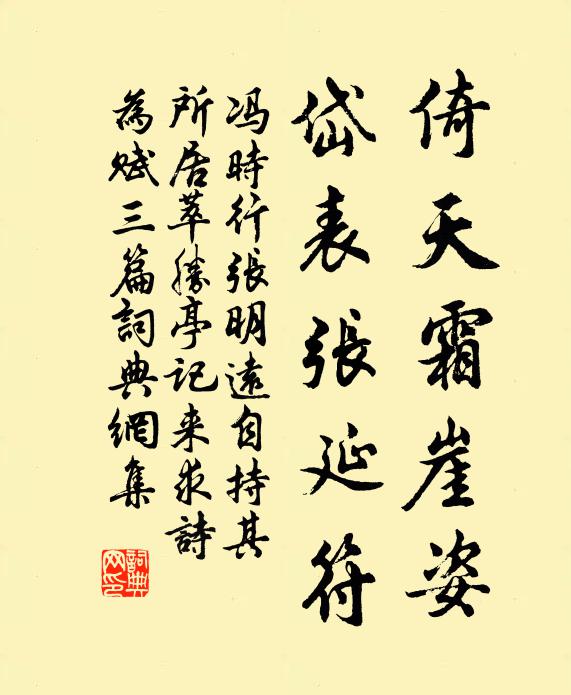 倚天霜崖姿
岱表張延符
馮時行張明遠自持其
所居萃勝亭記来求詩
為賦三篇詞典網集
詞典
网印